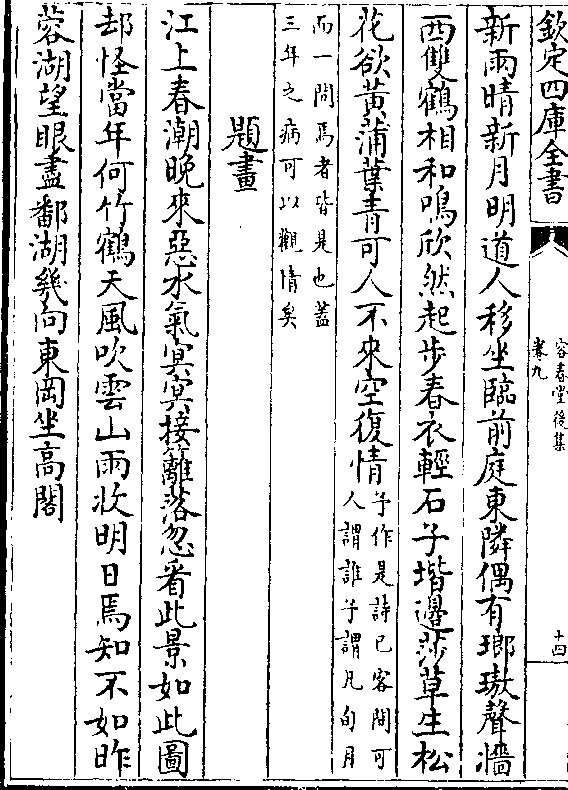 欽定四庫全書
容春堂後集
卷九
十四
新雨晴新月明道人移坐臨前庭東隣偶有瑯璈聲墻
西雙鶴相和鳴欣然起步春衣輕石子堦邊莎草生松
花欲黄蒲葉青可人不來空復情予作是詩已客問可
人謂誰予謂凡旬月
而一問焉者皆是也葢
三年之病可以觀情矣
題畫
江上春潮晚來惡水氣㝠㝠接籬落忽看此景如此圖
却怪當年何竹鶴天風吹雲山雨收明日焉知不如昨
蓉湖望眼盡鄱湖幾向東岡坐高閣